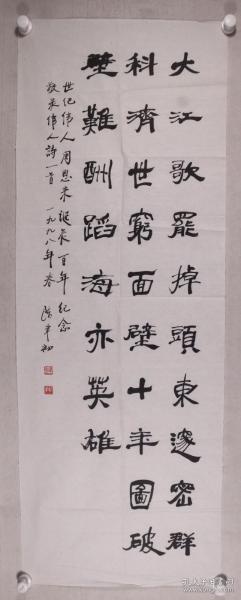 大江歌罷掉頭東邃密群
科濟世窮面壁十年圖破
壁難酬蹈海亦英雄
世纪伟人周恩来诞辰百年纪念
敬录伟人詩一首 一九九八年春